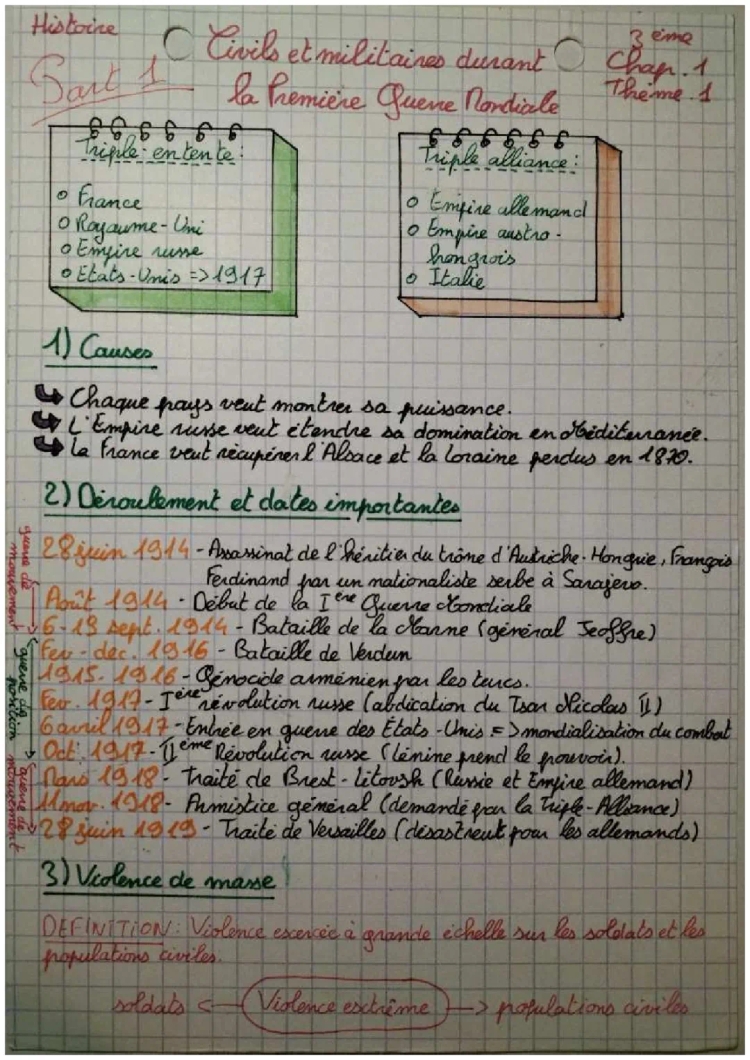 Histoire
3ème
Civils et militaires durant
Chap. 1
Part 1
la Première Guerre Mondiale
Thème.1
Triple-entente:
o France
o Royaume-Uni
o Empire russe
o Etats-Unis => 1917
Triple alliance:
o Empire allemand
o Empire austro-
hongrois
o Italie
1) Causes
↳ Chaque pays veut montrer sa puissance.
↳ L'Empire russe veut étendre sa domination en Méditerranée.
↳ La France veut récupérer l'Alsace et la Loraine perdus en 1870.
2) Déroulement et dates importantes
28 juin 1914 - Assassinat de l'héritier du trône d'Autriche-Hongrie, François
Ferdinand par un nationaliste serbe à Sarajevo.
Août 1914 - Début de la Ière Guerre Mondiale
6-13 sept. 1914 - Bataille de la Marne (général Jeoffre)
Fev - dec. 1916 - Bataille de Verdun
1915-1916 - Génocide arménien par les turcs.
Fev. 1917 - Ière révolution russe (abdication du Tsar Nicolas II)
6 avril 1917 - Entrée en guerre des Etats-Unis => mondialisation du combat
Oct. 1917 - IIème Révolution russe (Lénine prend le pouvoir).
Mars 1918 - Traité de Brest-Litovsk (Russie et Empire allemand)
11 nov. 1918 - Armistice général (demandé par la Triple-Alliance)
28 juin 1919 - Traité de Versailles (désastreux pour les allemands)
guerre de
mouvement
guerre de
position
guerre de
mouvement
3) Violence de masse
DEFINITION: Violence excercée à grande échelle sur les soldats et les
populations civiles.
soldats <- Violence esctrême -> populations civiles